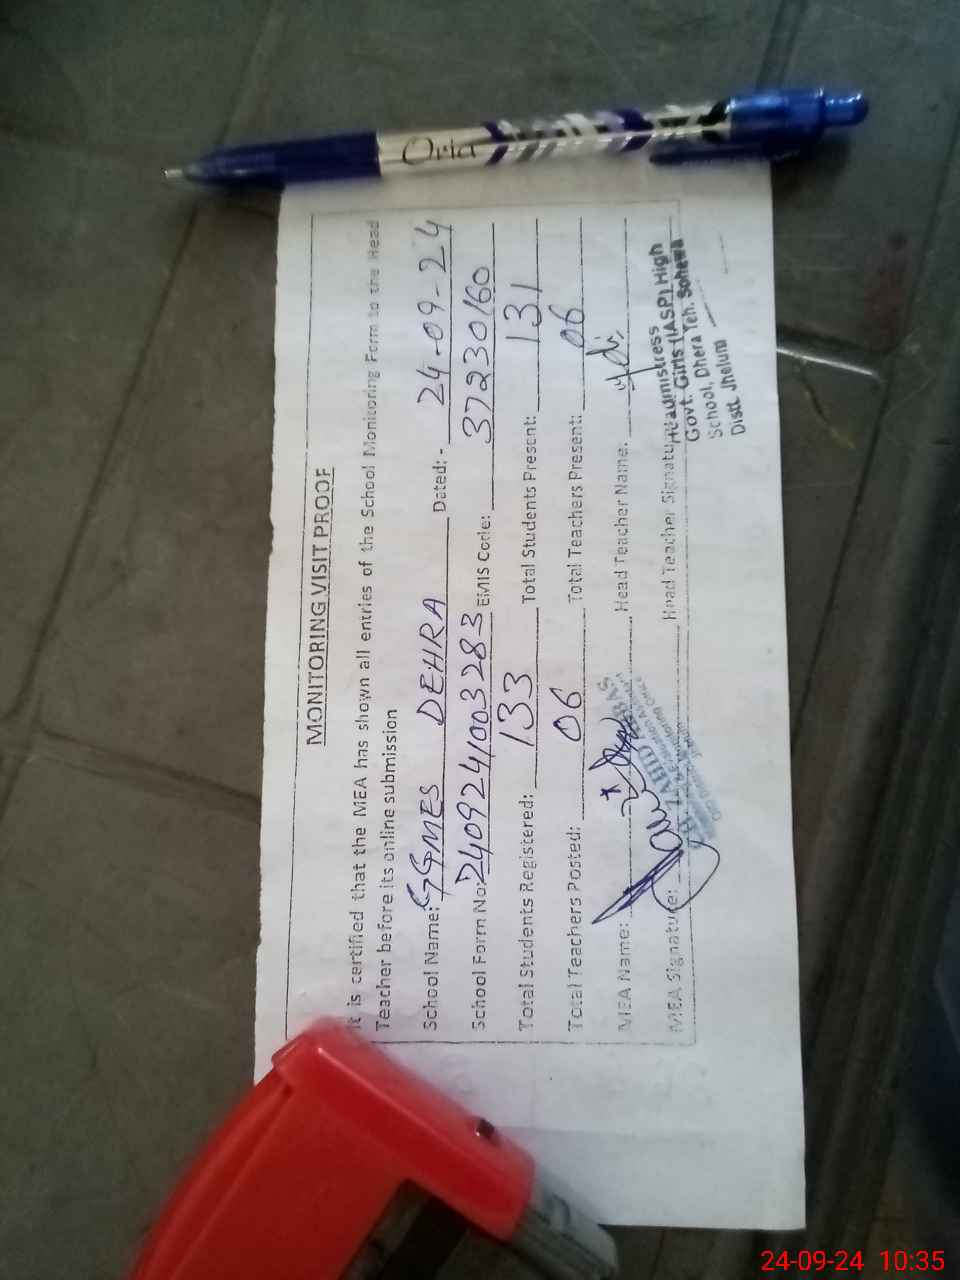 Oria
MONITORING VISIT PROOF
It is certified that the MEA has shown all entries of the School Monitoring Form to the Head
Teacher before its online submission
School Name: GGMES DEHRA Dated: - 24-09-24
School Form No: 2409241003283 EMIS Code: 37230160
Total Students Registered: 133 Total Students Present: 131
Total Teachers Posted: 06 Total Teachers Present: 06
MEA Name: Head Teacher Name:
MEA Signature: Head Teacher Signature
ZAHID ABBAS
Headmistress
Govt. Girls (IASP) High
School, Dhera Teh. Sohawa
Distt Jhelum
24-09-24 10:35